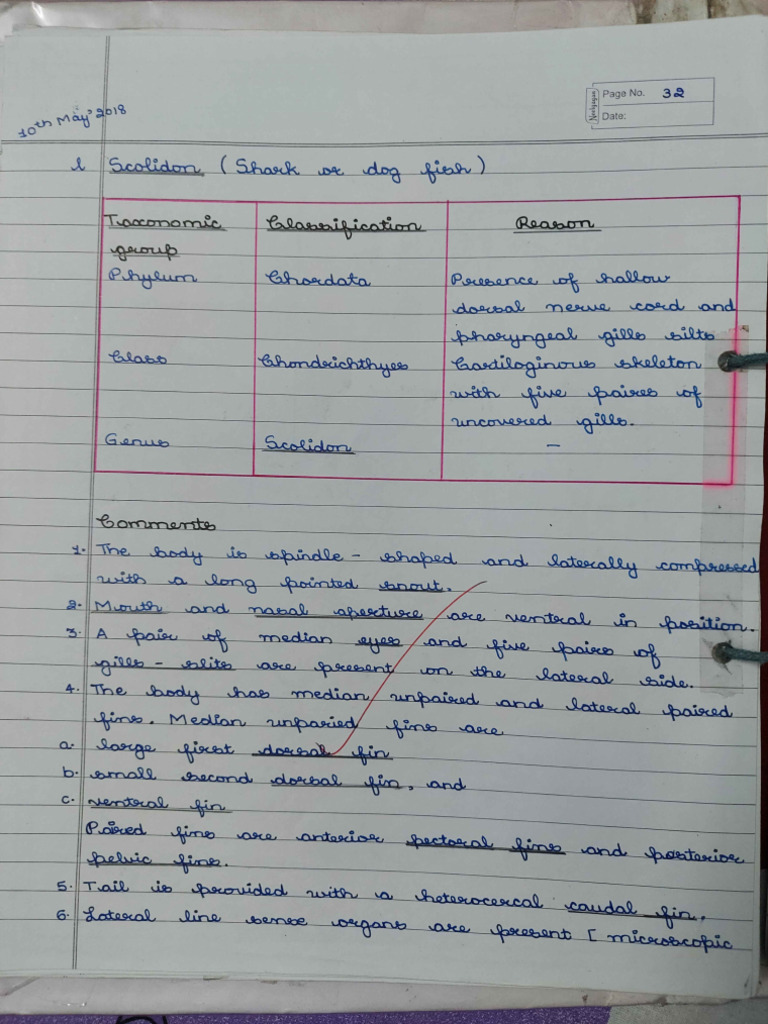 10th May' 2018
Neelgagan
Page No. 32
Date:
1 Scolidon (Shark or dog fish)
Taxonomic Classification Reason
group
Phylum Chordata Presence of hallow
dorsal nerve cord and
pharyngeal gills silts
Class Chondrichthyes Cartiloginous skeleton
with five paires of
uncovered gills.
Genus Scolidon –
Comments
1. The body is spindle - shaped and laterally compressed
with a long pointed snout.
2. Mouth and nasal aperture are ventral in position.
3. A pair of median eyes and five pairs of
gills - slits are present on the lateral side.
4. The body has median unpaired and lateral paired
fins. Median unparied fins are
a. large first dorsal fin
b. small second dorsal fin, and
c. ventral fin
Paired fins are anterior pectoral fins and posterior
pelvic fins.
5. Tail is provided with a heterocercal caudal fin,
6. Lateral line sense organs are present [ microscopic